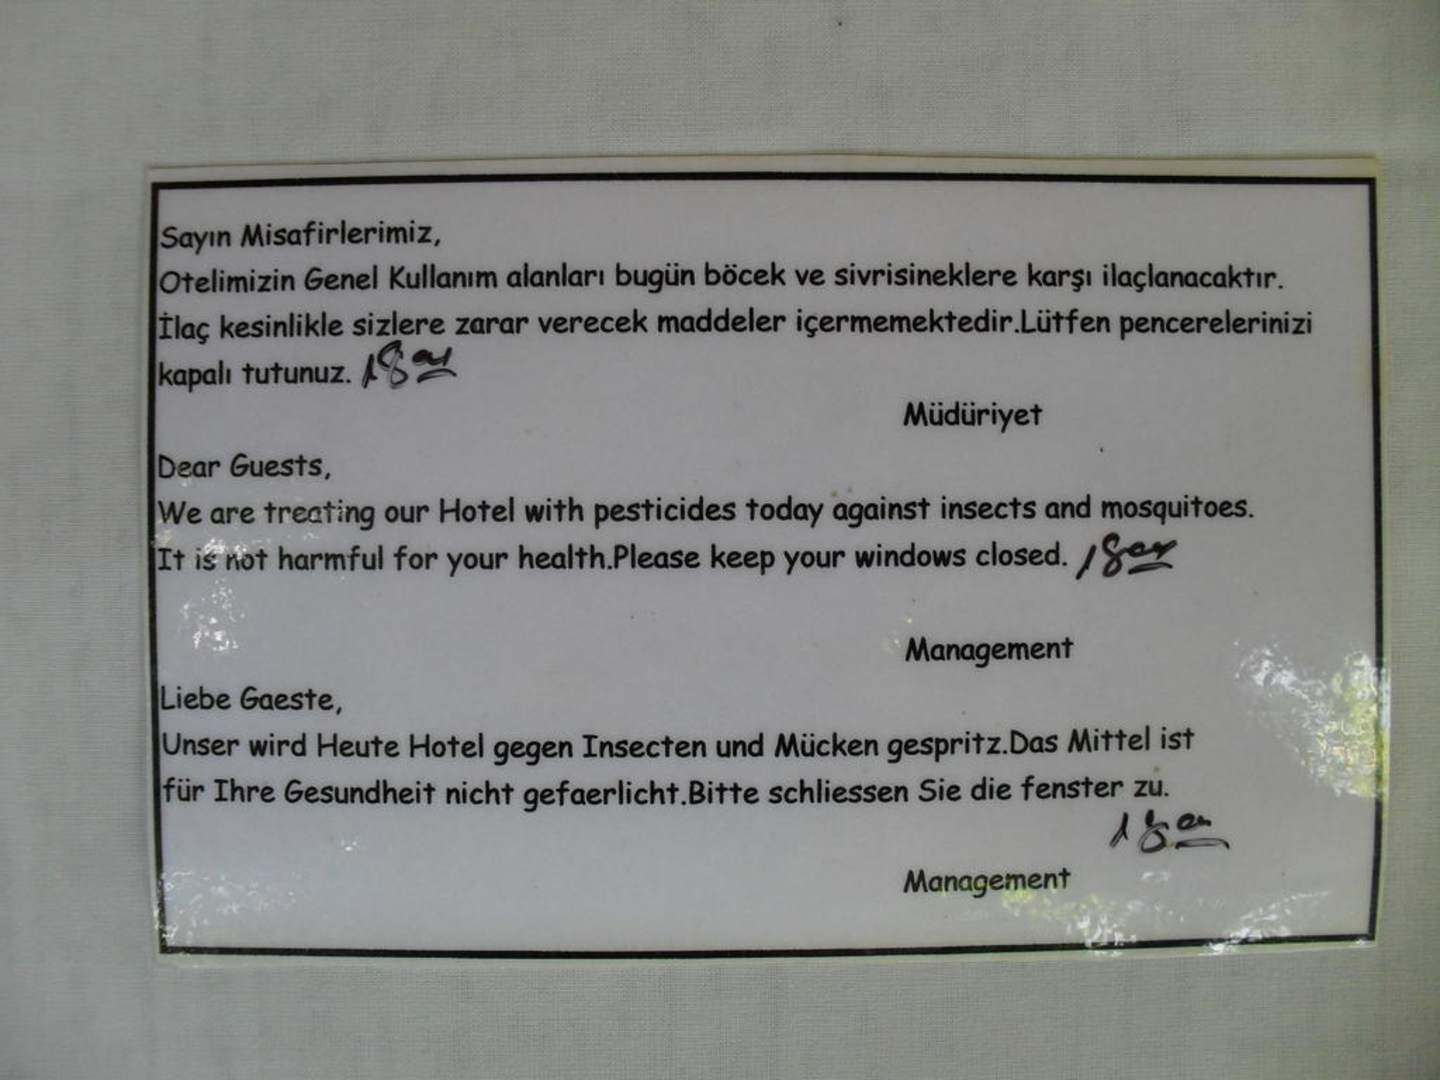 Sayın Misafirlerimiz,
Otelimizin Genel Kullanım alanları bugün böcek ve sivrisineklere karşı ilaçlanacaktır.
İlaç kesinlikle sizlere zarar verecek maddeler içermemektedir.Lütfen pencerelerinizi
kapalı tutunuz. 18
Müdüriyet
Dear Guests,
We are treating our Hotel with pesticides today against insects and mosquitoes.
It is not harmful for your health.Please keep your windows closed. 18
Management
Liebe Gaeste,
Unser wird Heute Hotel gegen Insecten und Mücken gespritz.Das Mittel ist
für Ihre Gesundheit nicht gefaerlicht.Bitte schliessen Sie die fenster zu.
18
Management